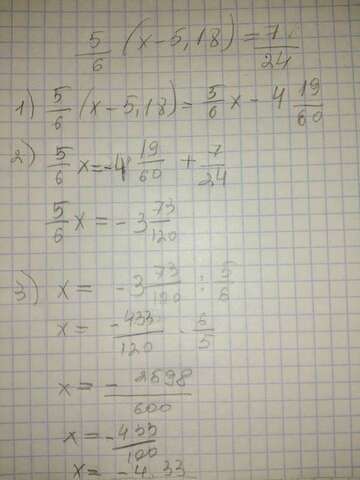 5/6 (x-5,18) = 7/24
1) 5/6 (x-5,18) = 5/6 x - 4 19/60
2) 5/6 x = -4 19/60 + 7/24
5/6 x = -3 73/120
3) x = -3 73/100 : 5/6
x = -433/120 · 6/5
x = - 2598/600
x = -433/100
x = -4.33